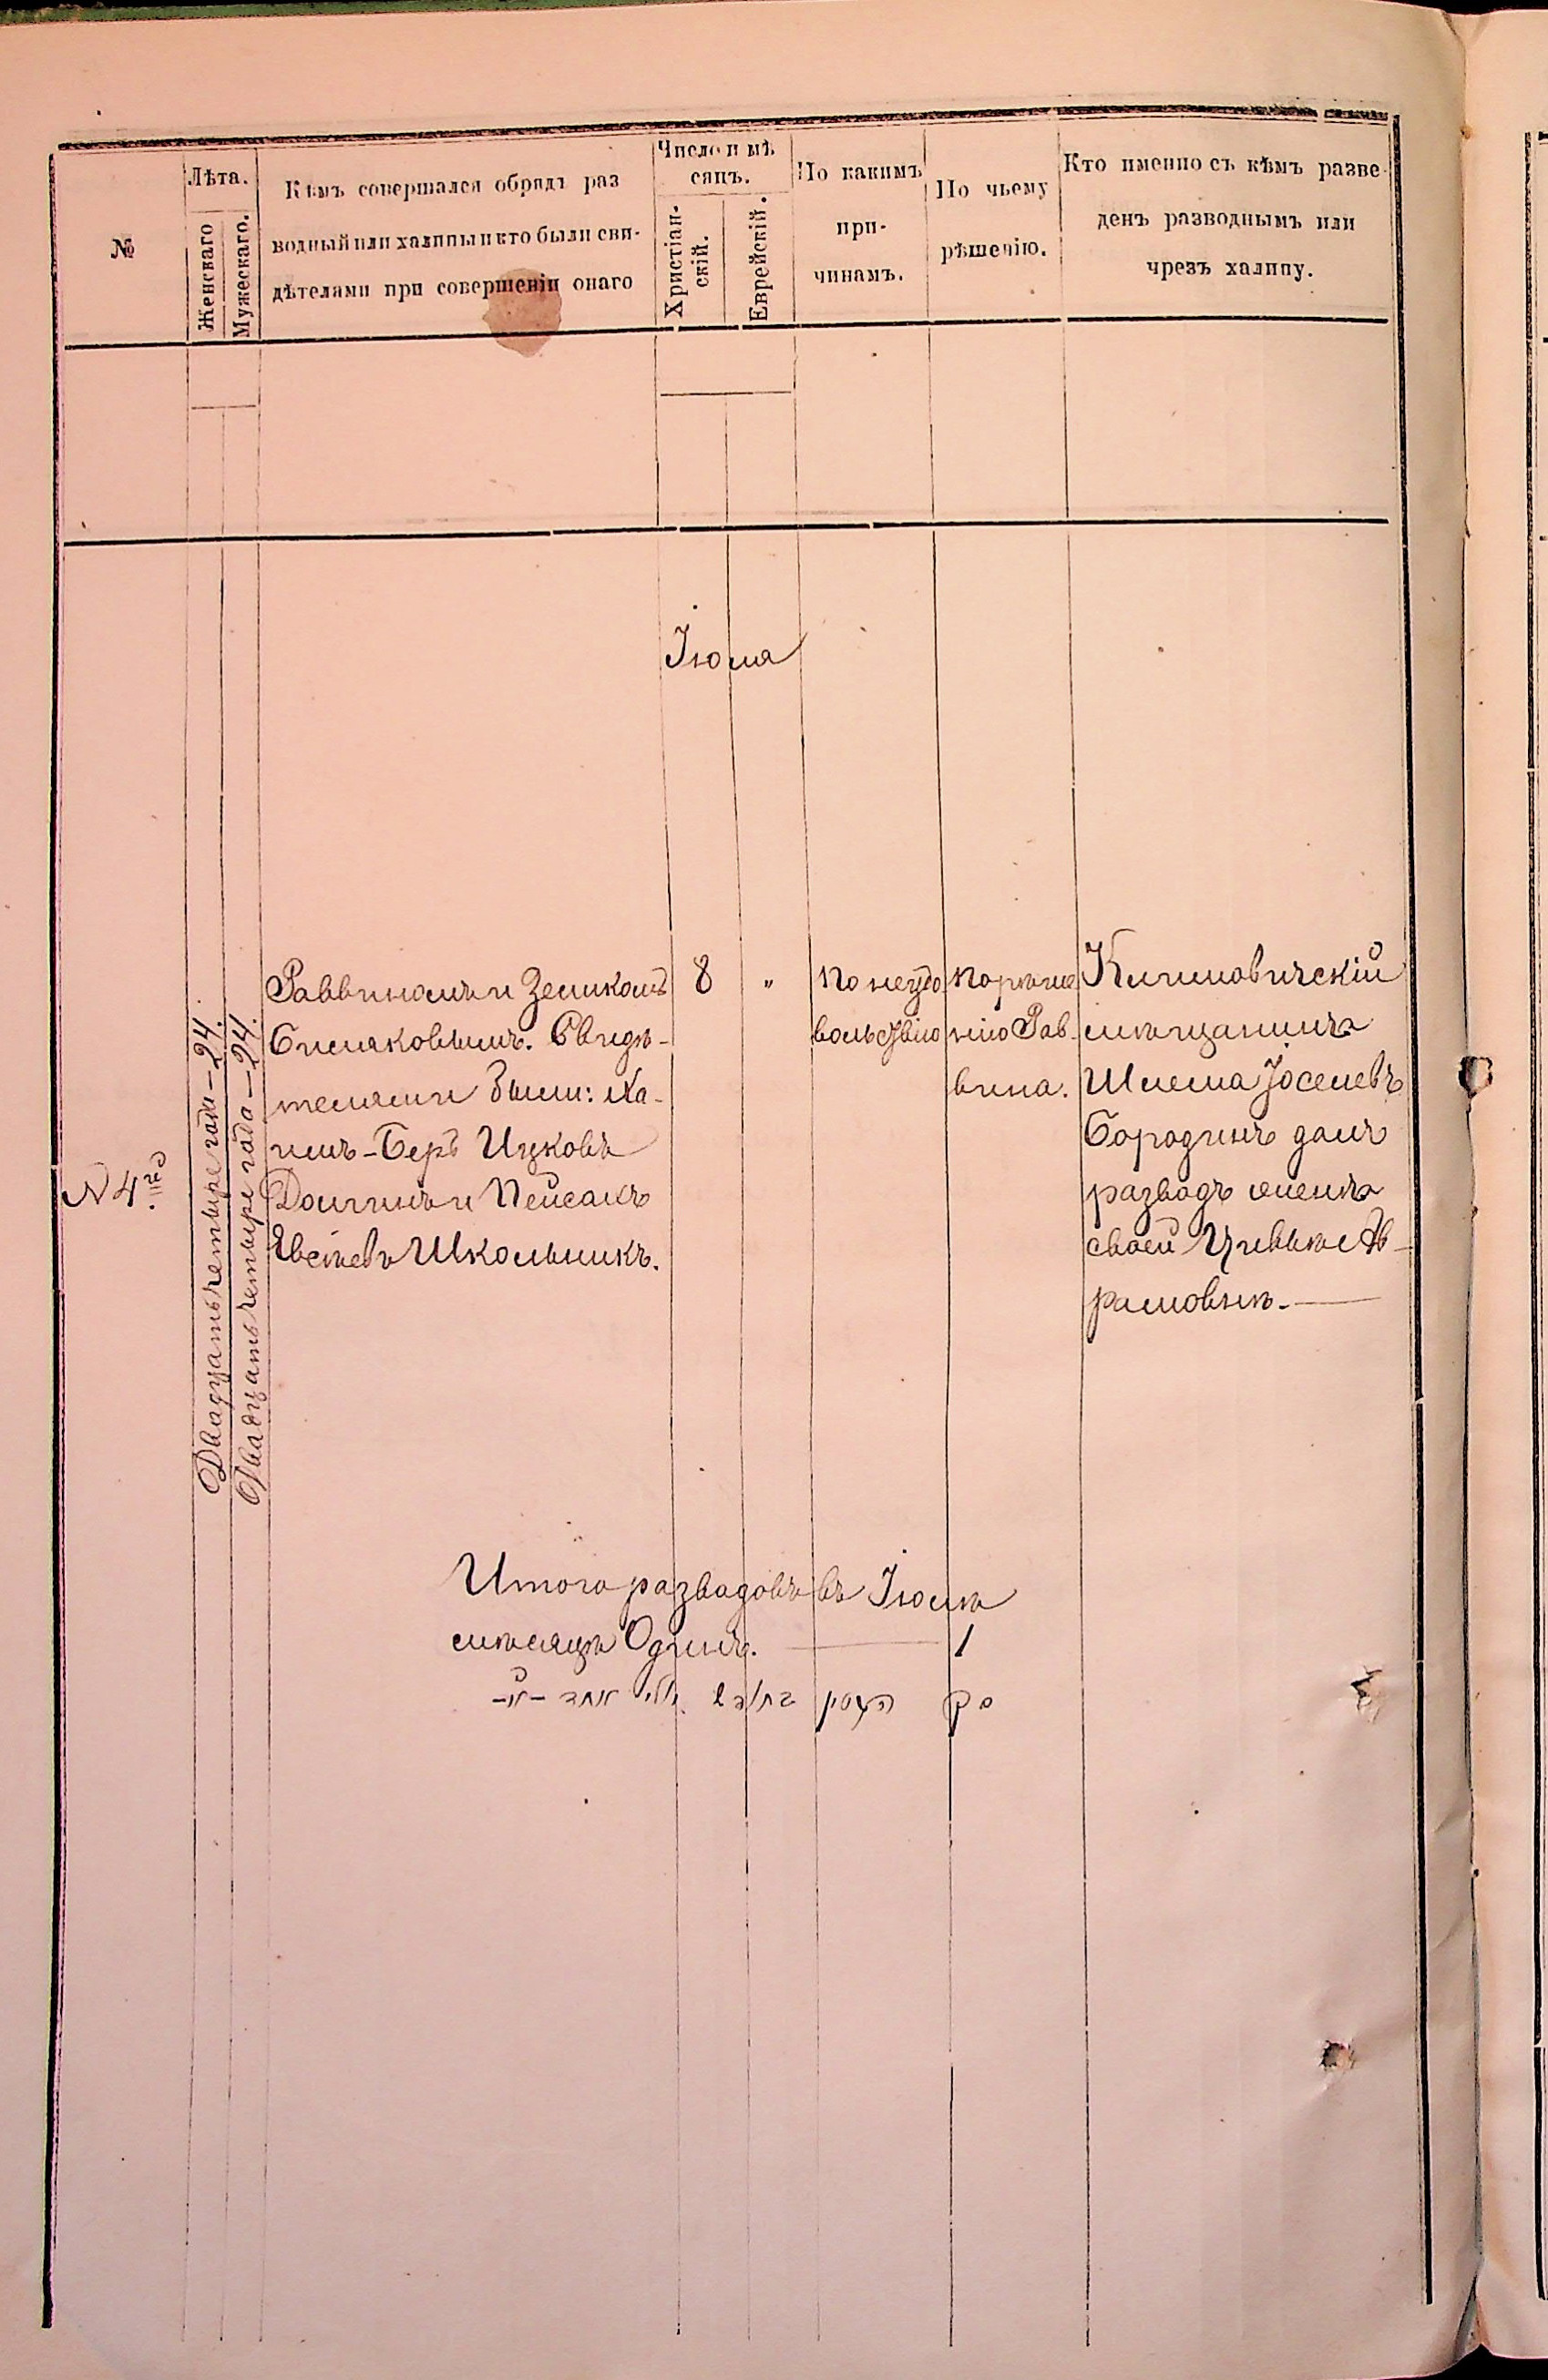 №
Лѣта.
Женскаго
Мужескаго.
Кѣмъ совершался обрядъ раз
водный или халицы и кто были сви-
дѣтелями при совершеніи онаго
Число и мѣ
сяцъ.
Христіан-
скій.
Еврейскій.
По какимъ
при-
чинамъ.
По чьему
рѣшенію.
Кто именно съ кѣмъ разве-
денъ разводнымъ или
чрезъ халицу.
Іюня
№ 4й
Двадцать четыре года – 24.
Двадцать четыре года – 24.
Раввиномъ Зеликомъ
Симаковымъ. Свидѣ-
телями были: Ха-
имъ-Беръ Ицковъ
Долгинъ и Пейсахъ
Школьникъ.
8
"
По неудо
вольствію
По рѣше
нію Рав-
вина.
Климовичскій
мѣщанинъ
Шлема Іоселевъ
Бородинъ далъ
разводъ женѣ
своей Цивьѣ Аб-
рамовнѣ.
Итого разводовъ въ Іюнѣ
мѣсяцѣ Одинъ. 1
סך הצמק אחד -א-